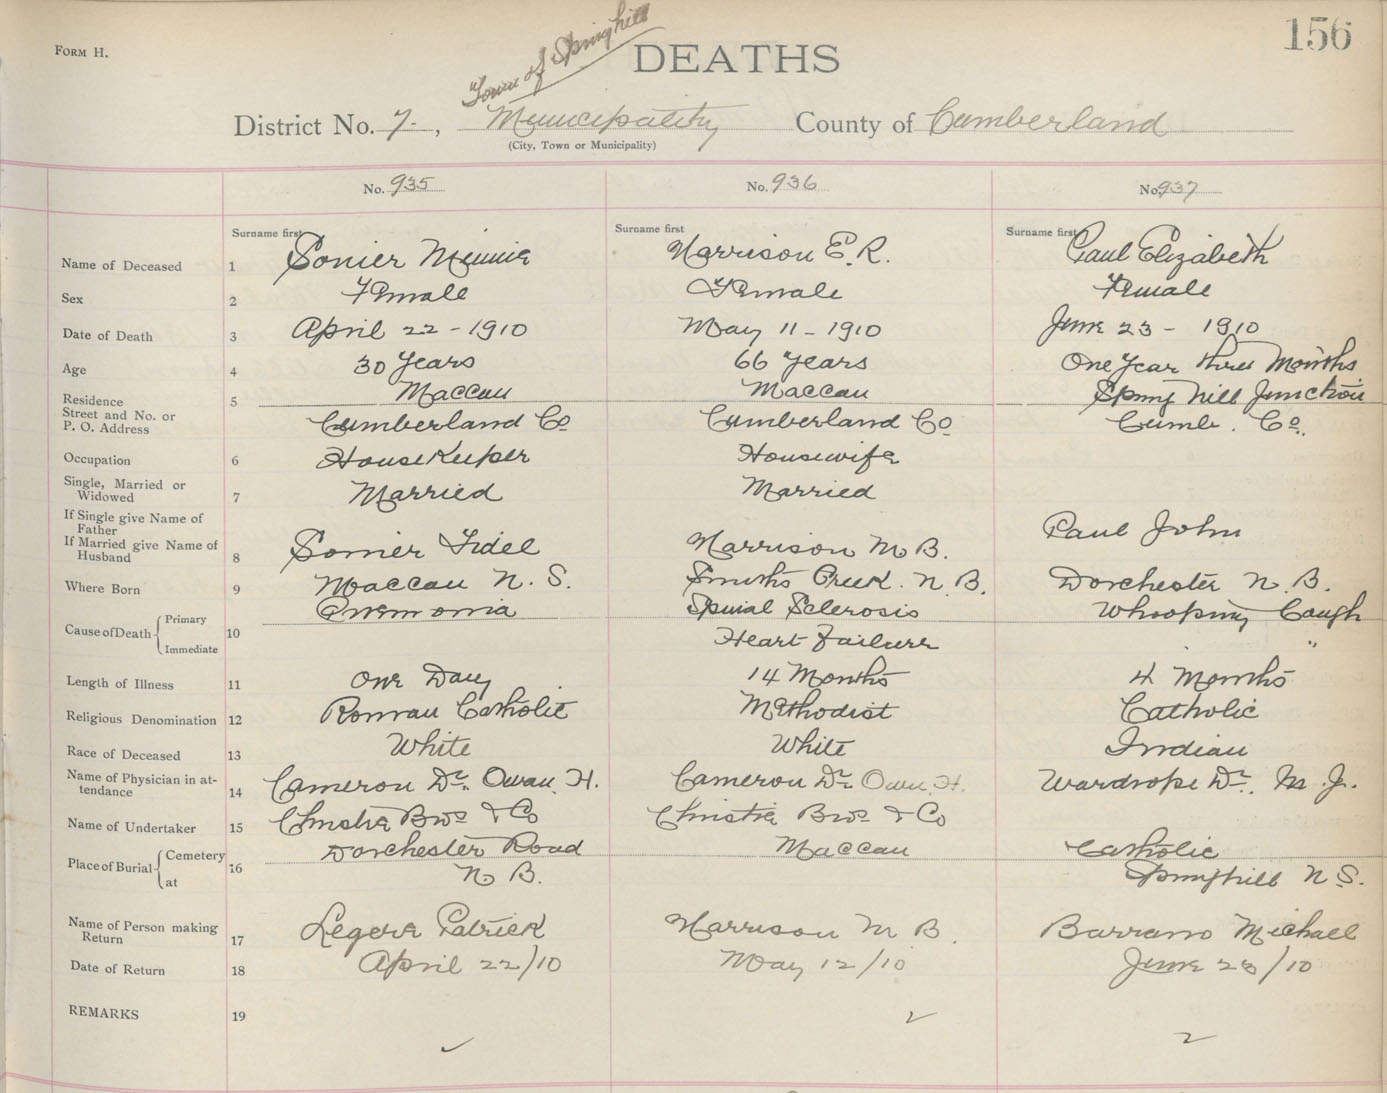 156
FORM H.
Town of Springhill
DEATHS
District No. 7. , Municipality County of Cumberland
(City, Town or Municipality)
No. 935 No. 936 No. 937
Surname first Surname first Surname first
Name of Deceased 1 Sonier Minnie Harrison E. R. Paul Elizabeth
Sex 2 Female Female Female
Date of Death 3 April 22 - 1910 May 11 - 1910 June 23 - 1910
Age 4 30 Years 66 years One Year three Months
Residence 5 Maccan Maccan Spring hill Junction
Street and No. or
P. O. Address Cumberland Co Cumberland Co Cumb. Co.
Occupation 6 HouseKeeper Housewife
Single, Married or
Widowed 7 Married Married
If Single give Name of
Father Paul John
If Married give Name of
Husband 8 Sonier Fidel Harrison M. B.
Where Born 9 Maccan N. S. Smiths Creek. N. B. Dorchester N. B.
Cause of Death Primary 10 Pnemonia Spinial Sclerosis Whooping Cough
Immediate Heart Failure "
Length of Illness 11 One Day 14 Months 4 Months
Religious Denomination 12 Roman Catholic Methodist Catholic
Race of Deceased 13 White White Indian
Name of Physician in at-
tendance 14 Cameron Dr. Owan. H. Cameron Dr. Owen. H. Wardrope Dr. M. J.
Name of Undertaker 15 Christie Bros & Co Christie Bros & Co
Place of Burial Cemetery 16 Dorchester Road Maccan Catholic
at N. B. Springhill N. S.
Name of Person making
Return 17 Legere Patrick Harrison M B. Barrano Michael
Date of Return 18 April 22/10 May 12/10 June 23/10
REMARKS 19